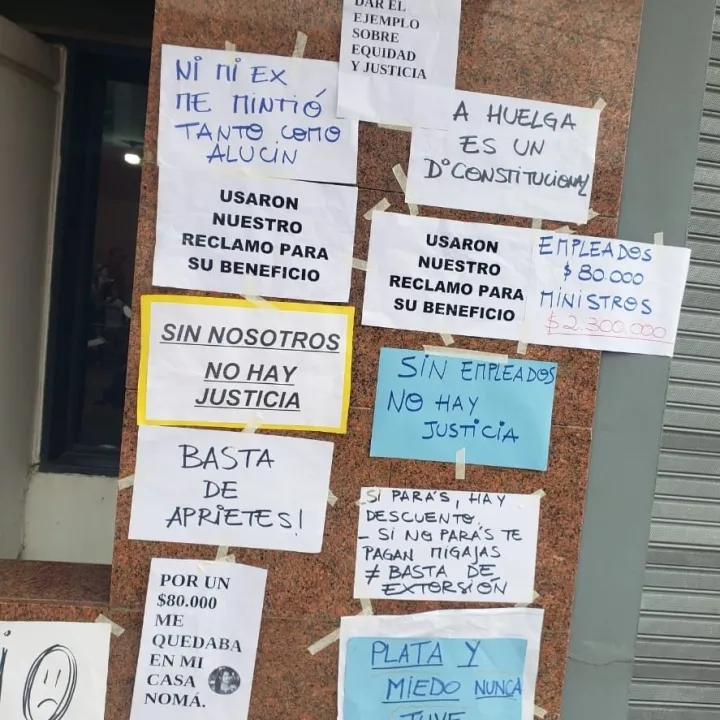 DAR EL
EJEMPLO
SOBRE
EQUIDAD
Y JUSTICIA
NI MI EX
ME MINTIÓ
TANTO COMO
ALUCIN
A HUELGA
ES UN
D° CONSTITUCIONAL
USARON
NUESTRO
RECLAMO PARA
SU BENEFICIO
USARON
NUESTRO
RECLAMO PARA
SU BENEFICIO
EMPLEADOS
$ 80.000
MINISTROS
$ 2.300.000
SIN NOSOTROS
NO HAY
JUSTICIA
SIN EMPLEADOS
NO HAY
JUSTICIA
BASTA
DE
APRIETES!
SI PARÁS, HAY
DESCUENTO.
- SI NO PARÁS TE
PAGAN MIGAJAS
≠ BASTA DE
EXTORSIÓN
POR UN
$80.000
ME
QUEDABA
EN MI
CASA
NOMÁ.
PLATA Y
MIEDO NUNCA
TUVE